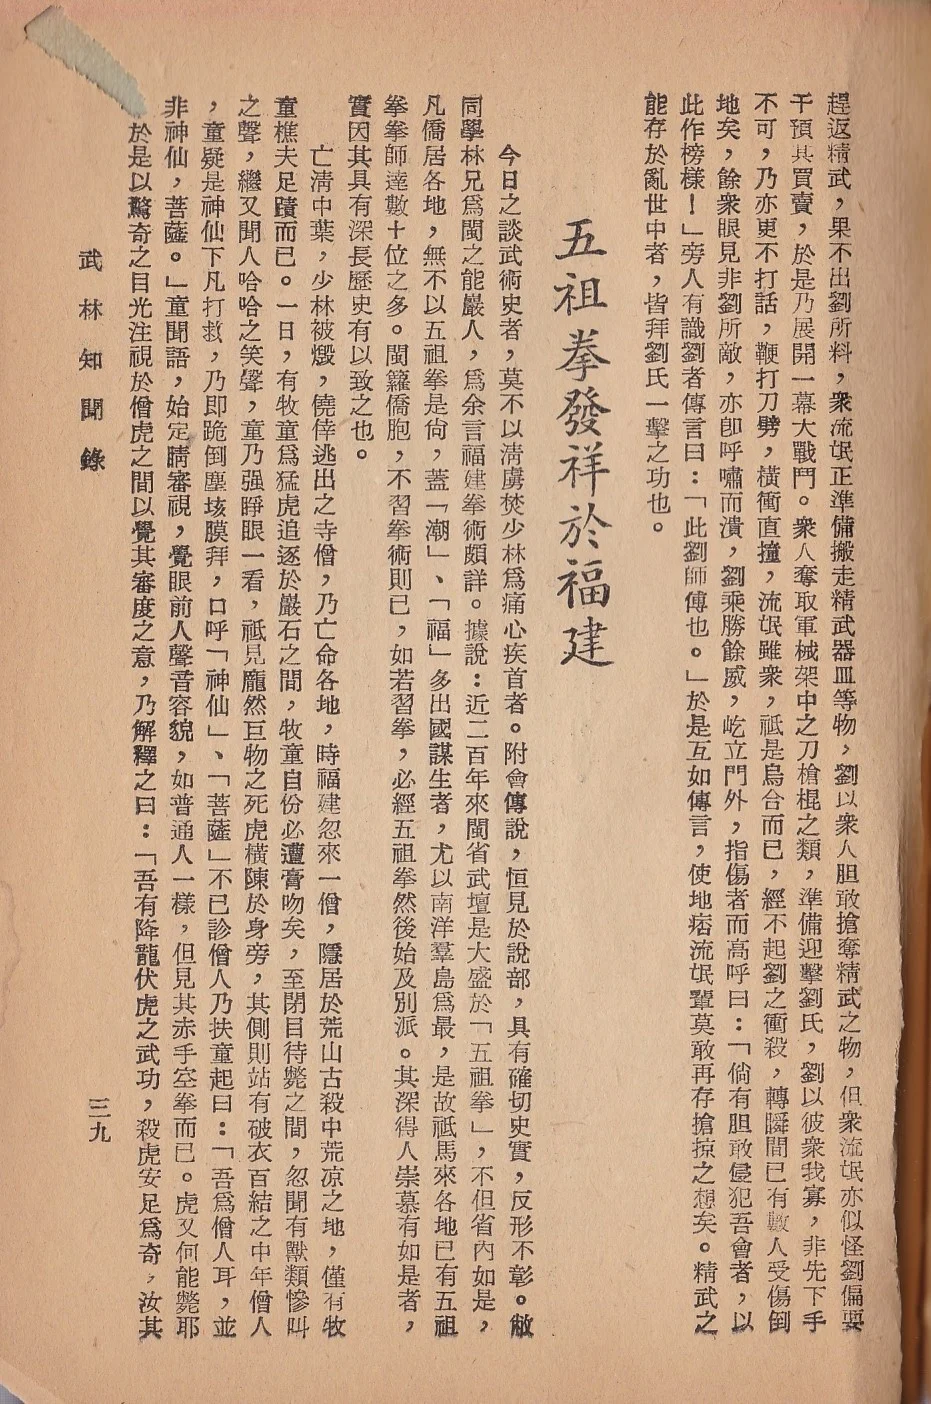 趕返精武，果不出劉所料，衆流氓正準備搬走精武器皿等物，劉以衆人胆敢搶奪精武之物，但衆流氓亦似怪劉偏要
干預其買賣，於是乃展開一幕大戰鬥。衆人奪取軍械架中之刀槍棍之類，準備迎擊劉氏，劉以彼衆我寡，非先下手
不可，乃亦更不打話，鞭打刀劈，橫衝直撞，流氓雖衆，祗是烏合而已，經不起劉之衝殺，轉瞬間已有數人受傷倒
地矣，餘衆眼見非劉所敵，亦卽呼嘯而潰，劉乘勝餘威，屹立門外，指傷者而高呼曰：「倘有胆敢侵犯吾會者，以
此作榜樣！」旁人有識劉者傳言曰：「此劉師傅也。」於是互如傳言，使地痞流氓輩莫敢再存搶掠之想矣。精武之
能存於亂世中者，皆拜劉氏一擊之功也。
五祖拳發祥於福建
今日之談武術史者，莫不以淸虜焚少林爲痛心疾首者。附會傳說，恒見於說部，具有確切史實，反形不彰。敝
同學林兄爲閩之能嚴人，爲余言福建拳術頗詳。據說：近二百年來閩省武壇是大盛於「五祖拳」，不但省內如是，
凡僑居各地，無不以五祖拳是尙，蓋「潮」、「福」多出國謀生者，尤以南洋羣島爲最，是故祗馬來各地已有五祖
拳拳師達數十位之多。閩籍僑胞，不習拳術則已，如若習拳，必經五祖拳然後始及別派。其深得人崇慕有如是者，
實因其具有深長歷史有以致之也。
亡淸中葉，少林被燬，僥倖逃出之寺僧，乃亡命各地，時福建忽來一僧，隱居於荒山古殺中荒凉之地，僅有牧
童樵夫足蹟而已。一日，有牧童爲猛虎追逐於巖石之間，牧童自份必遭膏吻矣，至閉目待斃之間，忽聞有獸類慘叫
之聲，繼又聞人哈哈之笑聲，童乃强睜眼一看，祗見龐然巨物之死虎橫陳於身旁，其側則站有破衣百結之中年僧人
，童疑是神仙下凡打救，乃卽跪倒塵垓膜拜，口呼「神仙」、「菩薩」不已診僧人乃扶童起曰：「吾爲僧人耳，並
非神仙，菩薩。」童聞語，始定睛審視，覺眼前人聲音容貌，如普通人一樣，但見其赤手空拳而已。虎又何能斃耶
於是以驚奇之目光注視於僧虎之間以覺其審度之意，乃解釋之曰：「吾有降龍伏虎之武功，殺虎安足爲奇，汝其
武林知聞錄
三九